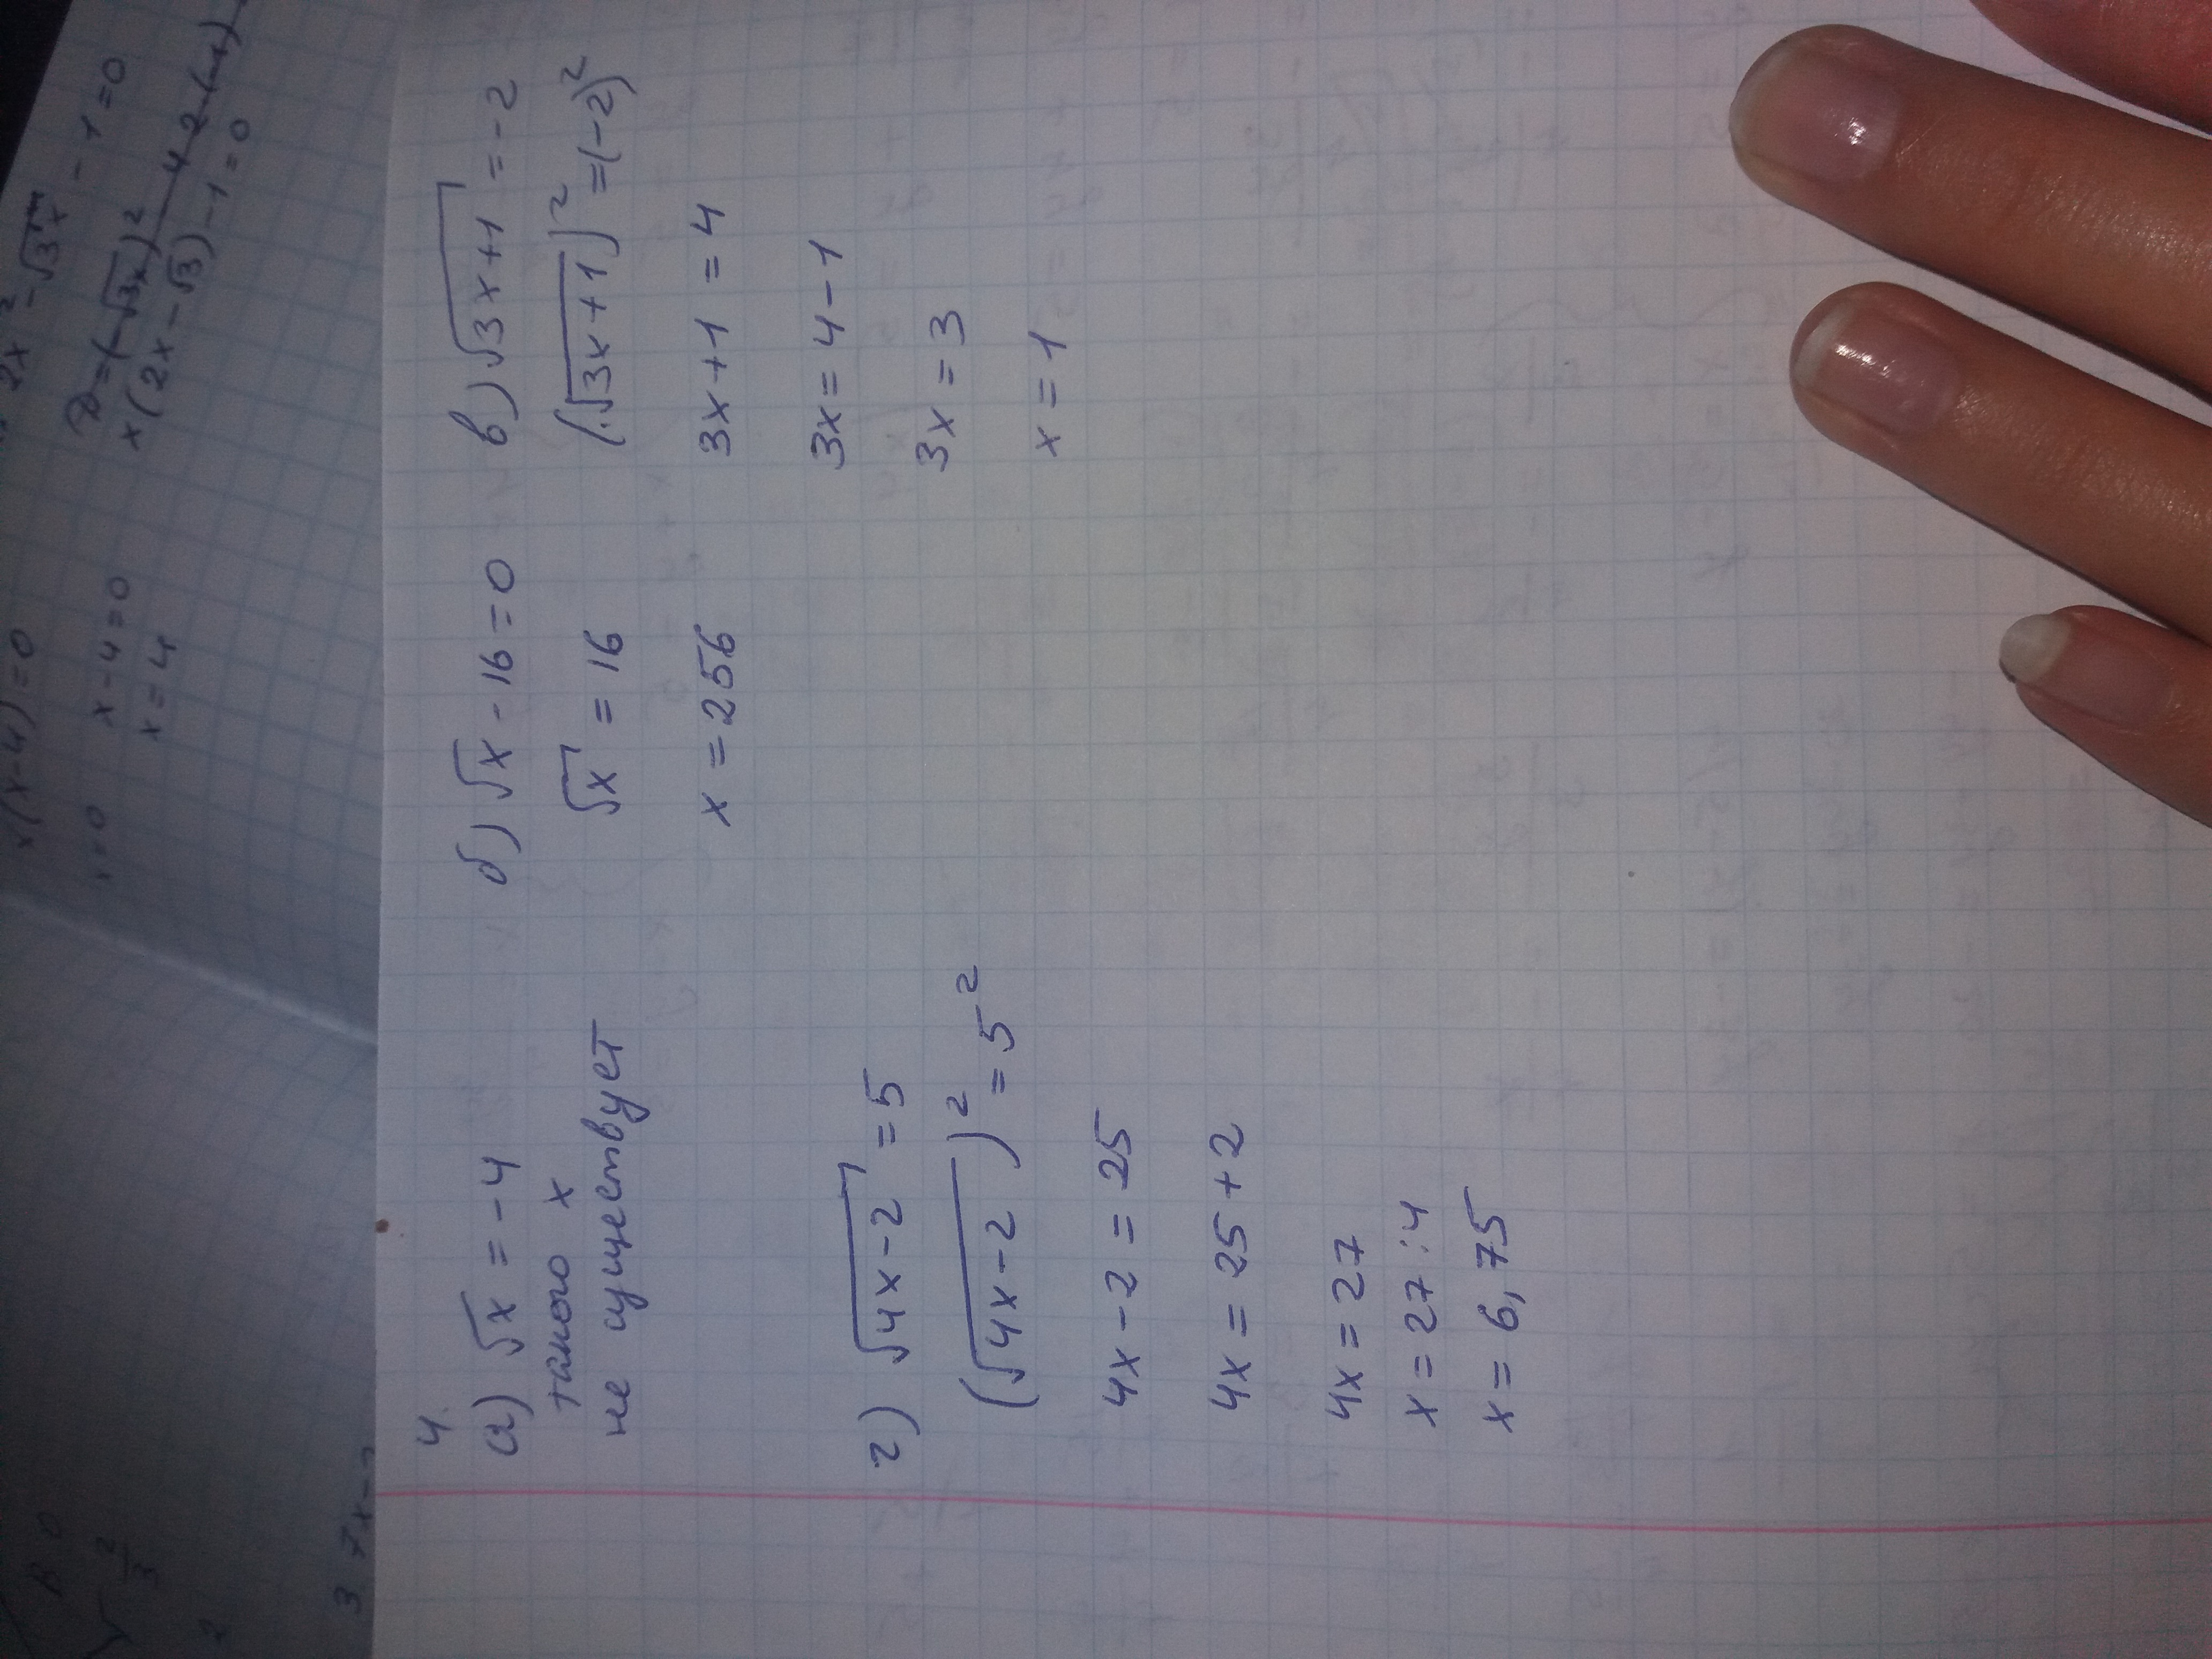 4.
а) √x = -4
такого x
не существует
б) √x - 16 = 0
√x = 16
x = 256
в) √3x+1 = -2
(√3x+1)² = (-2)²
3x+1 = 4
3x = 4-1
3x = 3
x = 1
г) √4x-2 = 5
(√4x-2)² = 5²
4x-2 = 25
4x = 25+2
4x = 27
x = 27:4
x = 6,75
x(x-4)=0
x-4=0
x=4
2x²-√3x - 1=0
x(2x-√3)-1=0